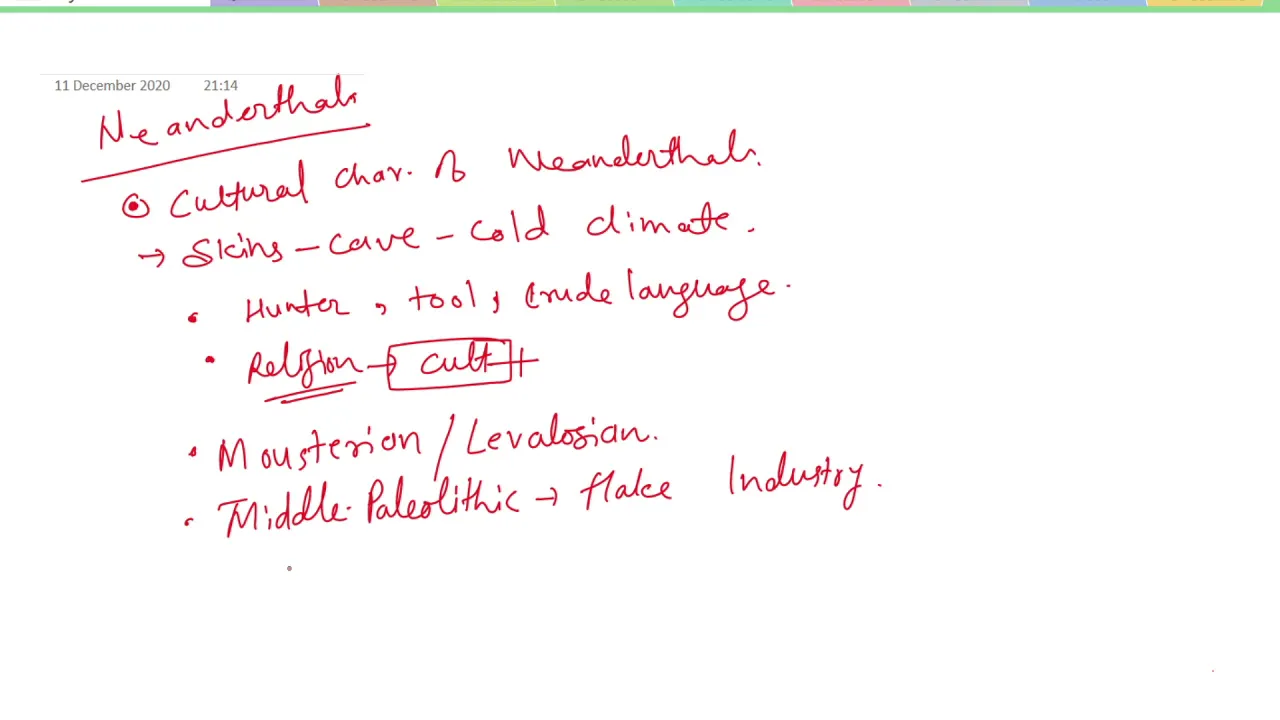 11 December 2020 21:14
Neanderthals
Cultural char. of Neanderthals.
→ Skins - cave - cold climate.
• Hunter, tool, crude language.
• Religion → cult
• Mousterian / Levalosian.
• Middle Paleolithic → flake Industry.